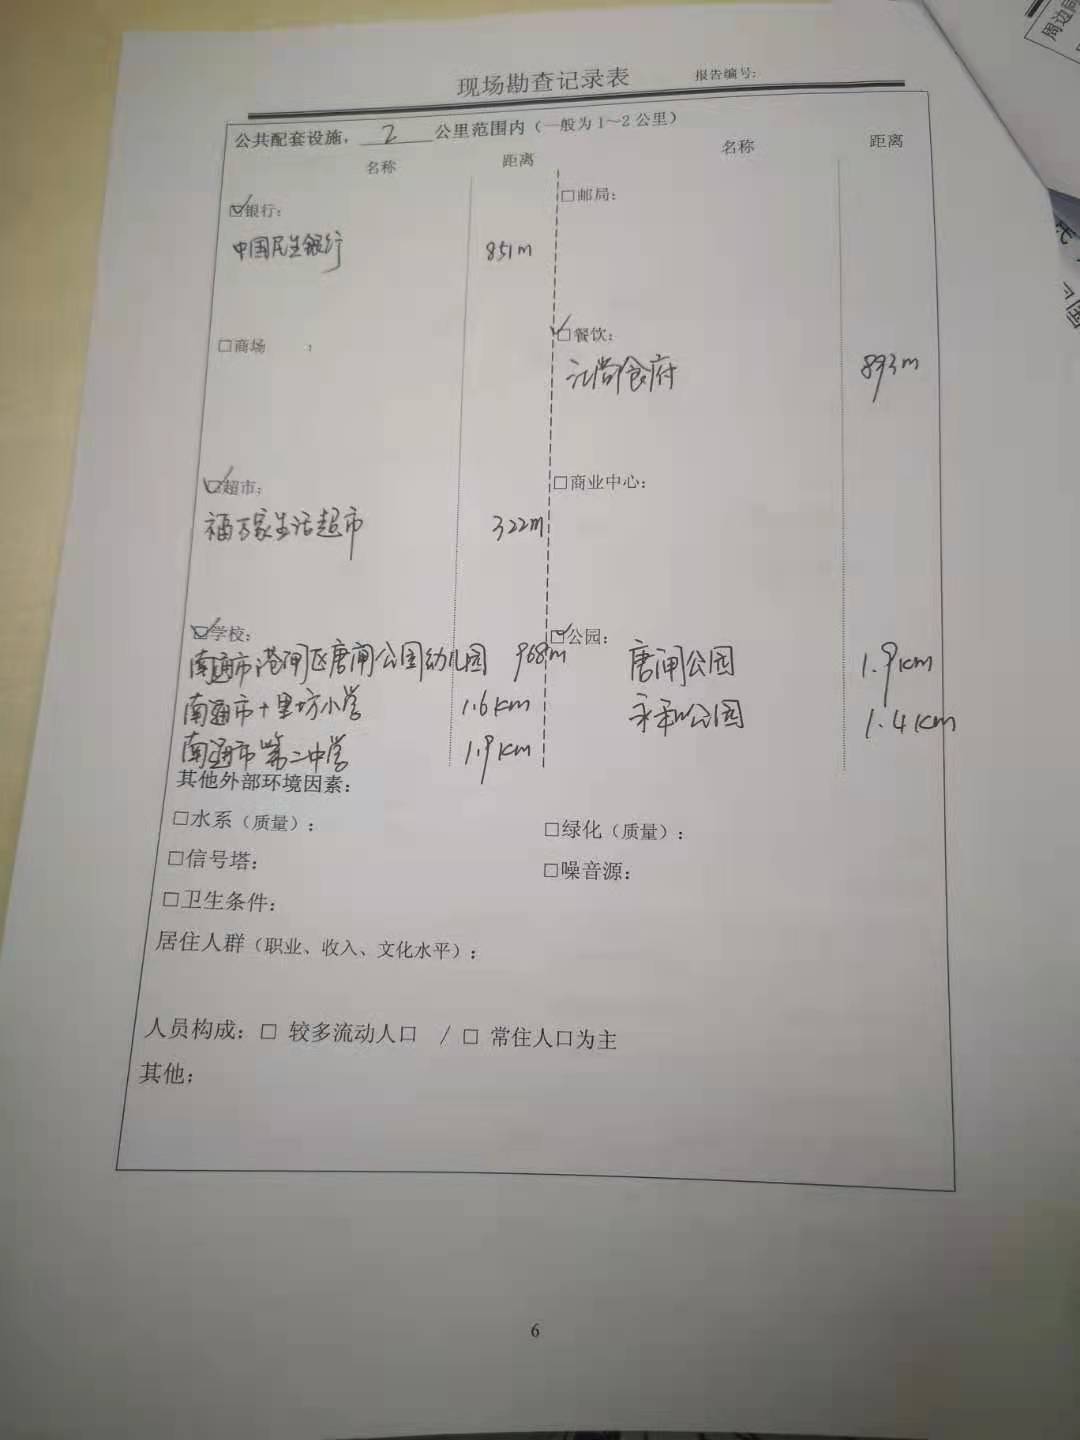 现场勘查记录表 报告编号:
公共配套设施， 2 公里范围内（一般为1～2公里）
名称 距离 名称 距离
☑银行： □邮局：
中国民生银行 851m
□商场 ： ☑餐饮：
江尚食府 893m
☑超市： □商业中心：
福万家生活超市 322m
☑学校： ☑公园：
南通市港闸区唐闸公园幼儿园 968m 唐闸公园 1.9km
南通市十里坊小学 1.6km 永和公园 1.4km
南通市第二中学 1.9km
其他外部环境因素：
□水系（质量）： □绿化（质量）：
□信号塔： □噪音源：
□卫生条件：
居住人群（职业、收入、文化水平）：
人员构成：□ 较多流动人口 / □ 常住人口为主
其他；
6
周边同